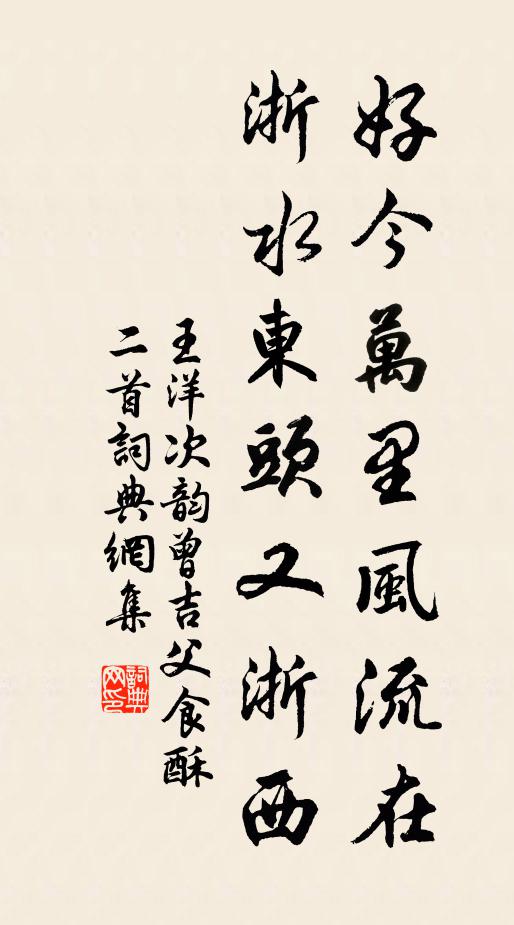 好今萬里風流在
浙水東頭又浙西
王洋次韵曾吉父食酥
二首詞典網集
詞典
网印